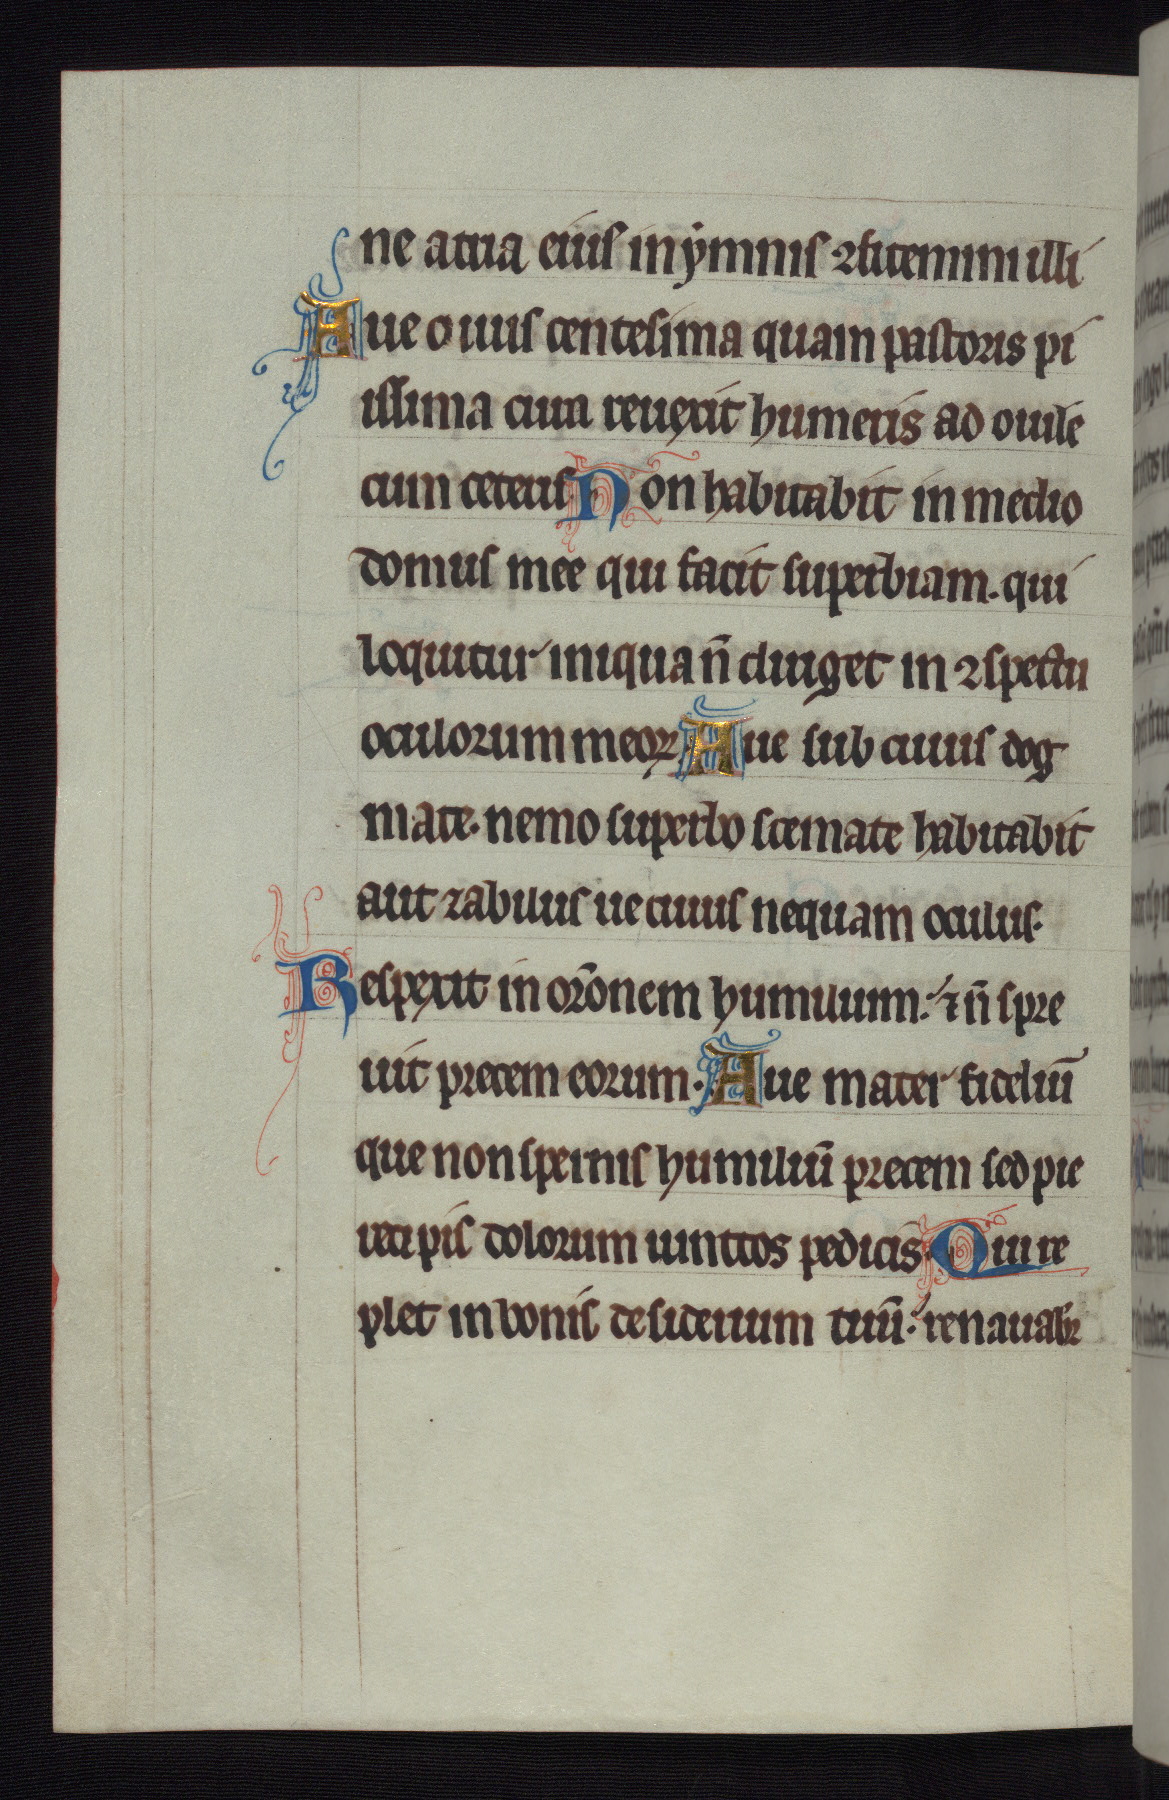 ne atria eius in ymnis ꝯfitemini illi
Aue o uuis centesima quam pastoris pi
issima cura reuexit humeris ad ouile
cum ceteris Non habitabit in medio
domus mee qui facit superbiam. qui
loquitur iniqua n̄ direxit in ꝯspectu
oculorum meoꝝ Aue sub cuius dog
mate. nemo superbo scemate habitabit
aut zabulus ue cuius nequam oculus.
Respexit in or̄onem humilium. ⁊ n̄ spre
uit precem eorum. Aue mater fideliū
que non spernis humiliū precem sed pie
recipis dolorum uinctos pedicis Qui re
plet in bonis desiderium tuū. renouabr̄